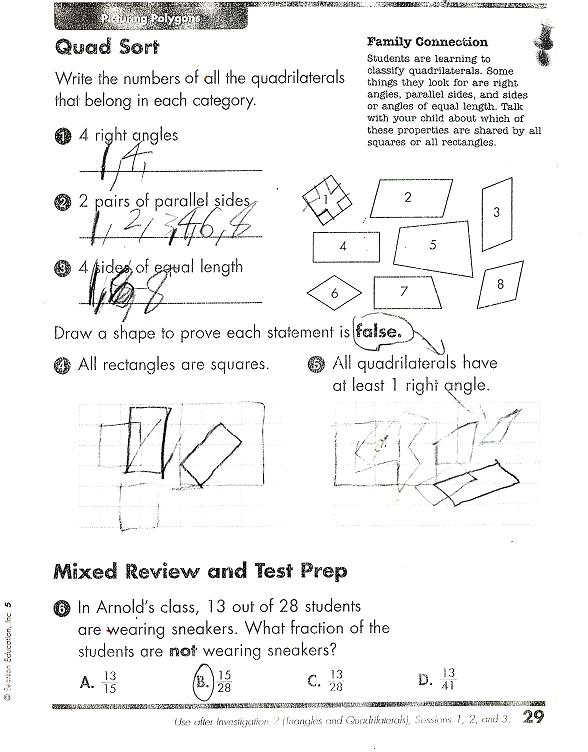 Picturing Polygons
Quad Sort
Write the numbers of all the quadrilaterals
that belong in each category.
Family Connection
Students are learning to
classify quadrilaterals. Some
things they look for are right
angles, parallel sides, and sides
or angles of equal length. Talk
with your child about which of
these properties are shared by all
squares or all rectangles.
1 4 right angles
1, 4,
2 2 pairs of parallel sides
1, 2, 3, 4, 6, 8
3 4 sides of equal length
1, 6, 8
1
2
3
4
5
6
7
8
Draw a shape to prove each statement is false.
4 All rectangles are squares.
5 All quadrilaterals have
at least 1 right angle.
Mixed Review and Test Prep
6 In Arnold's class, 13 out of 28 students
are wearing sneakers. What fraction of the
students are not wearing sneakers?
A. 13/15 B. 15/28 C. 13/28 D. 13/41
© Pearson Education, Inc. 5
Use after Investigation 2 (Triangles and Quadrilaterals), Sessions 1, 2, and 3. 29